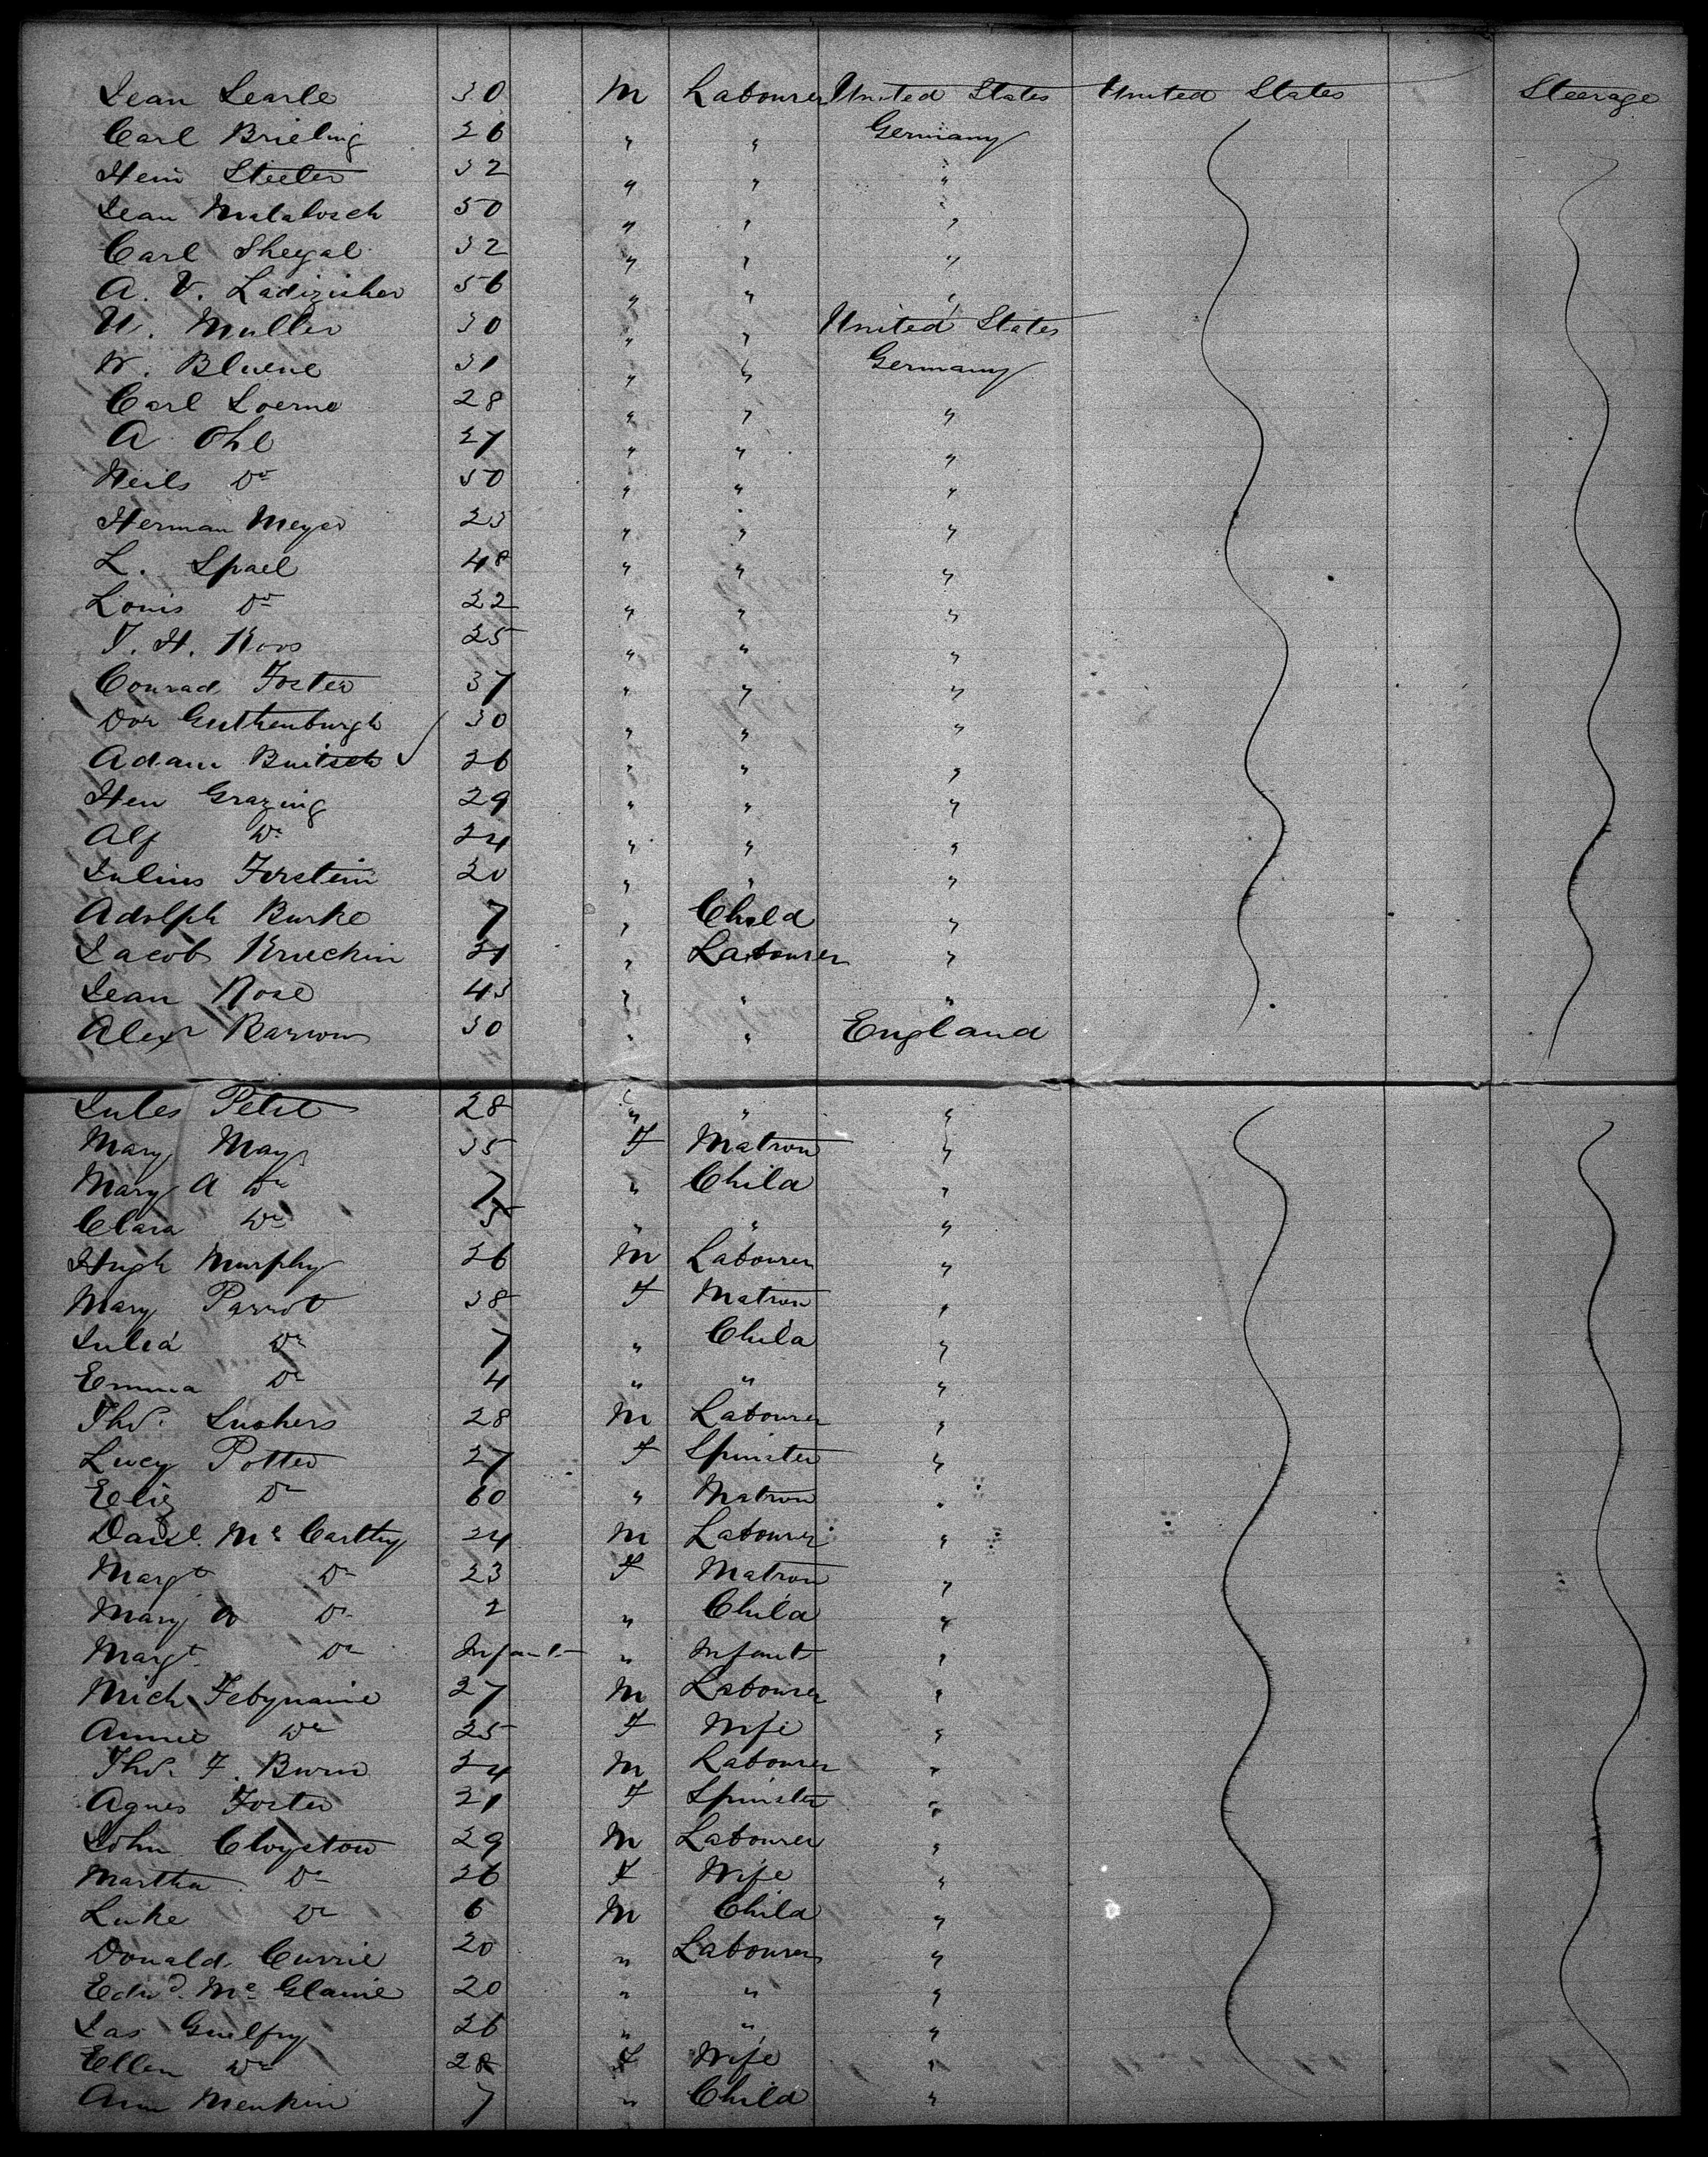 Jean Searle 30 M Labourer United States United States Steerage
Carl Brieling 26 " " Germany
Hein Steeler 32 " " "
Jean Malabosch 50 " " "
Carl Shegal 32 " " "
A. V. Ladizisher 56 " " "
U. Muller 30 " " United States
W. Bluene 31 " " Germany
Carl Loerne 28 " " "
A Ohl 27 " " "
Neils Do 50 " " "
Herman Meyer 23 " " "
L. Spael 48 " " "
Louis Do 22 " " "
J. H. Koos 25 " " "
Conrad Foster 37 " " "
Dor Guthenburgh 30 " " "
Adam Buitsch 26 " " "
Hen Grazing 29 " " "
Alf Do 24 " " "
Julius Forstein 20 " " "
Adolph Burke 7 " Child "
Jacob Kruckin 21 " Labourer "
Jean Rose 43 " " "
Alexr Barrow 30 " " England
Jules Petit 28 " " "
Mary May 35 F Matron "
Mary A Do 7 " Child "
Clara Do 5 " " "
Hugh Murphy 26 M Labourer "
Mary Parrot 38 F Matron "
Julia Do 7 " Child "
Emma Do 4 " " "
Thos. Lushers 28 M Labourer "
Lucy Potter 27 F Spinster "
Eliz Do 60 " Matron "
Danl. Mc Carthy 24 M Labourer "
Margt Do 23 F Matron "
Mary A Do 2 " Child "
Margt Do Infant " Infant "
Mich 27 M Labourer "
Annie Do 25 F Wife "
Thos. F. Burn 24 M Labourer "
Agnes Foster 21 F Spinster "
John Cloyston 29 M Labourer "
Martha Do 26 F Wife "
Luke Do 6 M Child "
Donald Currie 20 " Labourer "
Edwd. Mc Glaine 20 " " "
Jas Guilfry 26 " " "
Ellen Do 28 F Wife "
Ann Menkin 7 " Child "